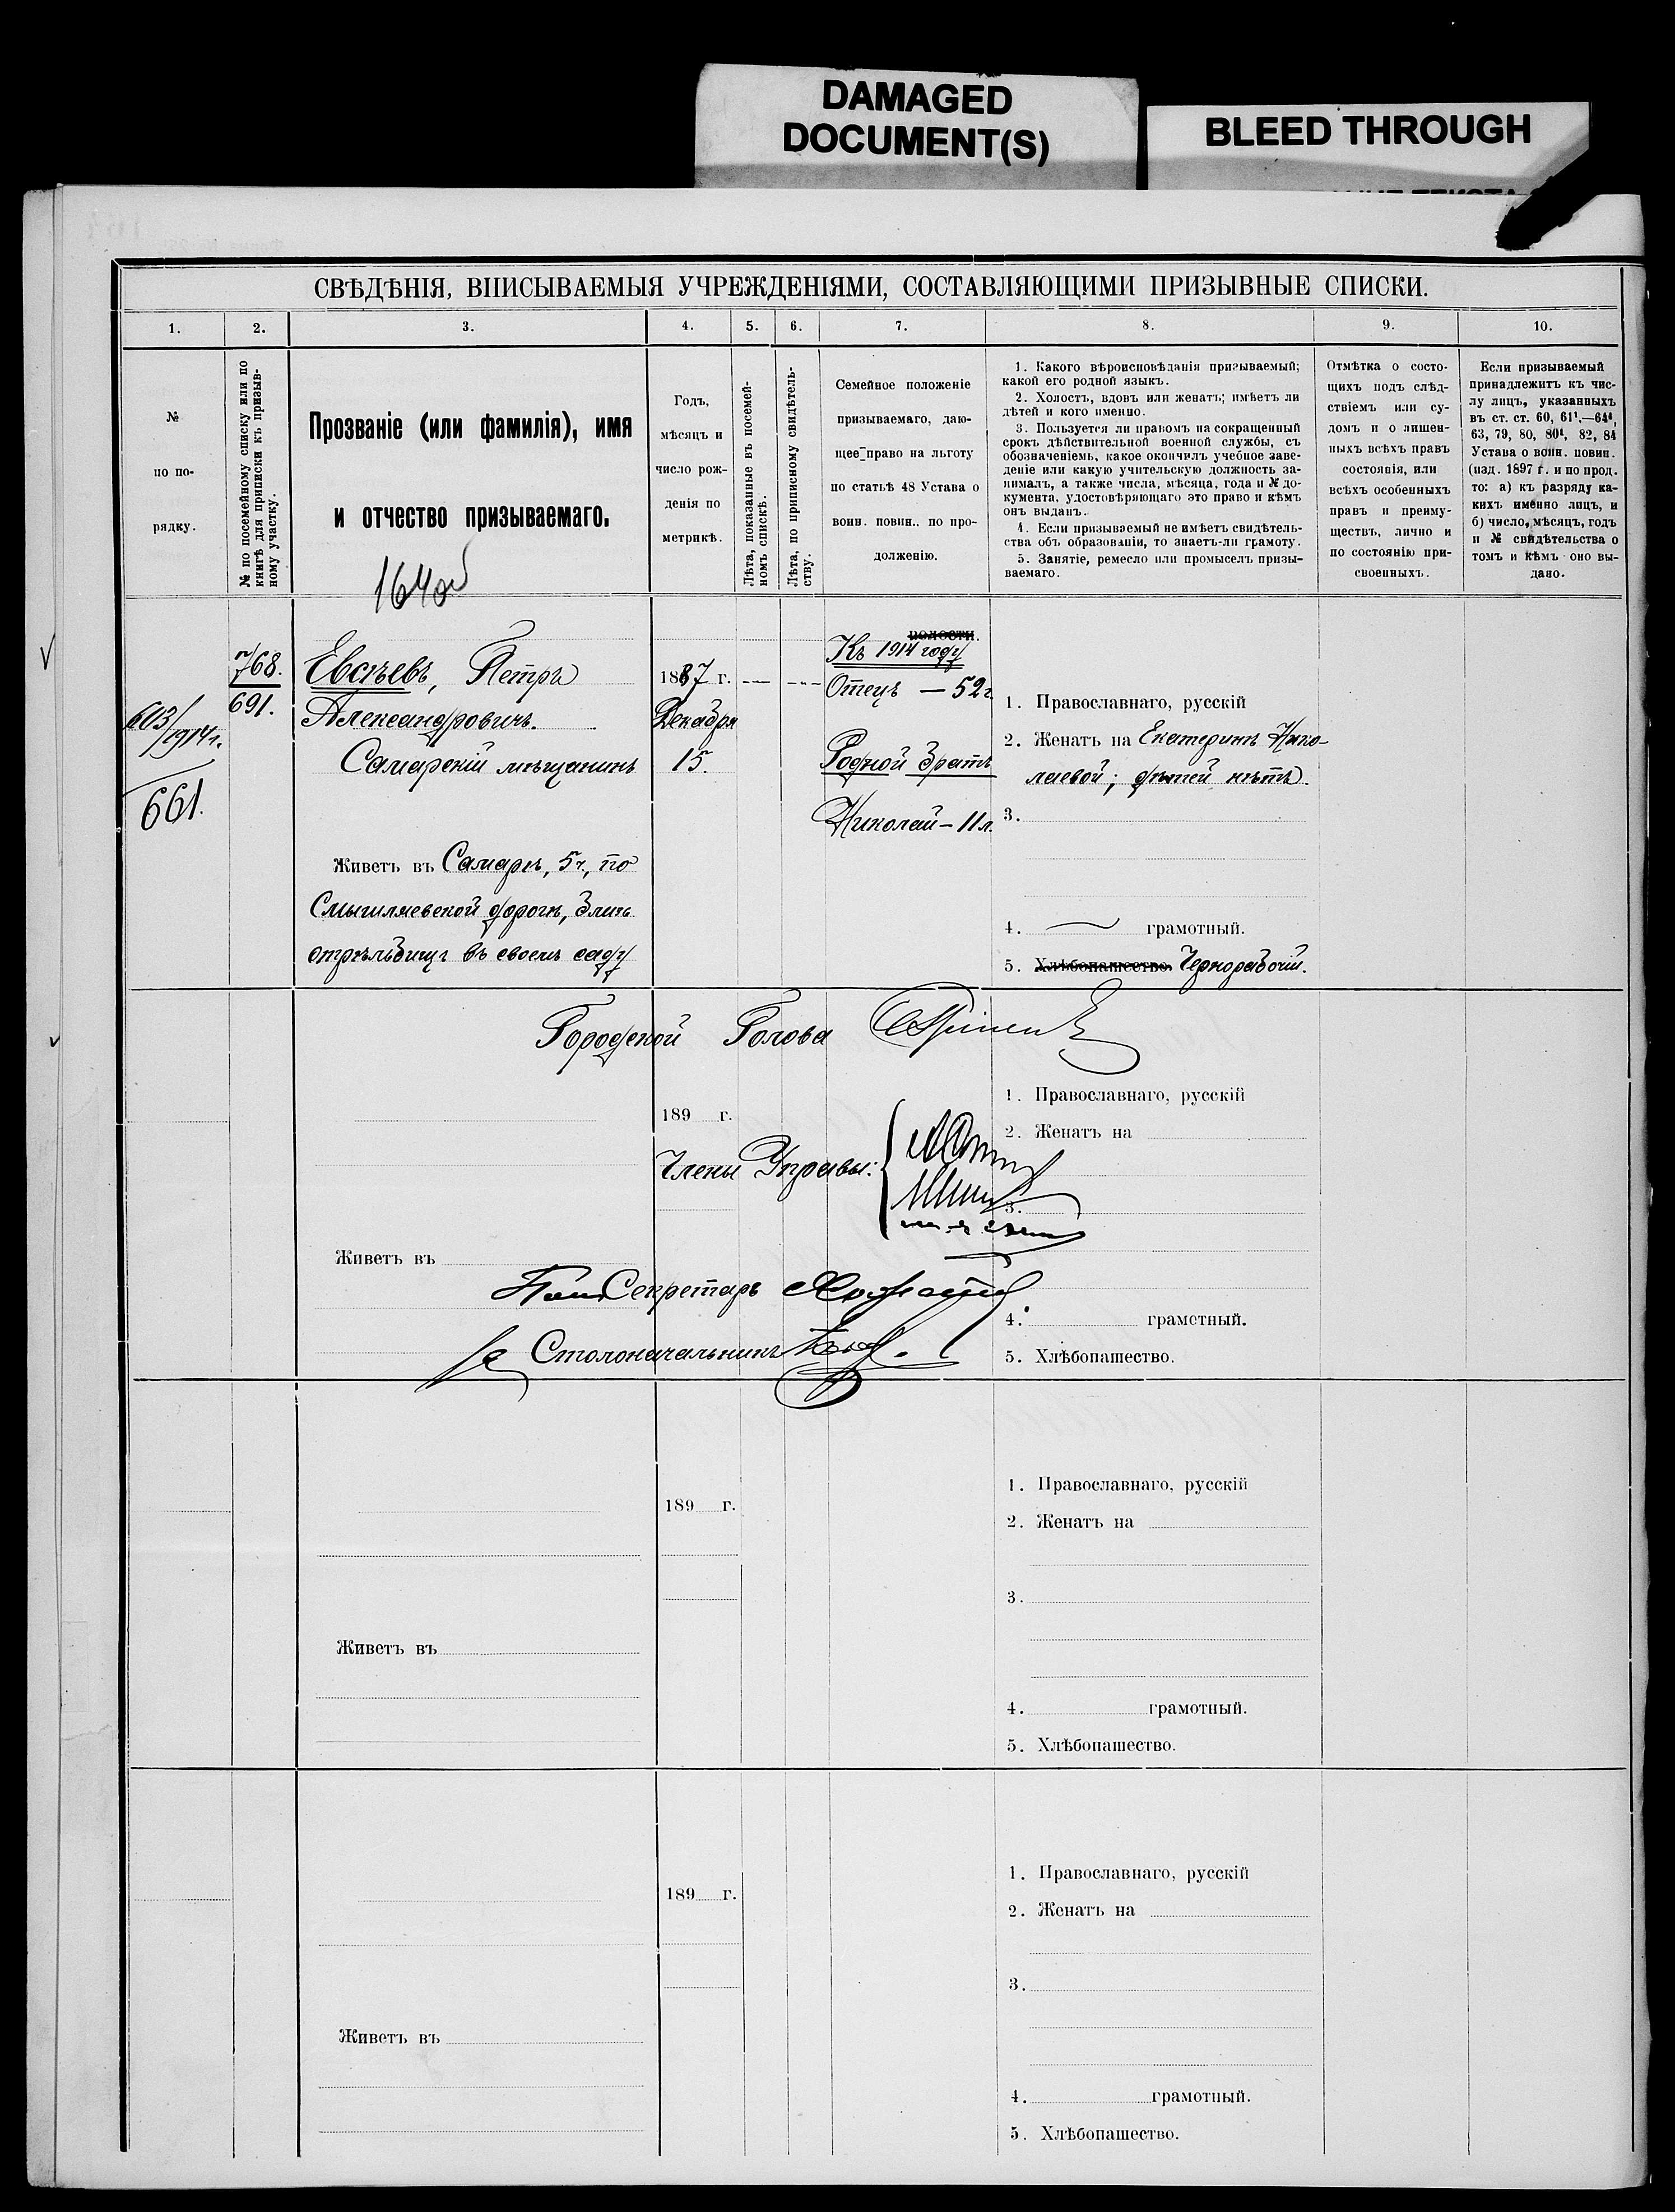 DAMAGED
DOCUMENT(S)
BLEED THROUGH
СВѢДѢНІЯ, ВПИСЫВАЕМЫЯ УЧРЕЖДЕНІЯМИ, СОСТАВЛЯЮЩИМИ ПРИЗЫВНЫЕ СПИСКИ.
1. 2. 3. 4. 5. 6. 7. 8. 9. 10.
№
по по-
рядку.
№ по посемейному списку или по
книгѣ для приписки къ призыв-
ному участку.
Прозваніе (или фамилія), имя
и отчество призываемаго.
Годъ,
мѣсяцъ и
число рож-
денія по
метрикѣ.
Лѣта, показанные въ посемей-
номъ спискѣ.
Лѣта, по приписному свидѣтель-
ству.
Семейное положеніе
призываемаго, даю-
щее право на льготу
по статьѣ 48 Устава о
воин. повин.. по про-
долженію.
1. Какого вѣроисповѣданія призываемый;
какой его родной языкъ.
2. Холостъ, вдовъ или женатъ; имѣетъ ли
дѣтей и кого именно.
3. Пользуется ли правомъ на сокращенный
срокъ дѣйствительной военной службы, съ
обозначеніемъ, какое окончилъ учебное заве-
деніе или какую учительскую должность за-
нималъ, а также числа, мѣсяца, года и № до-
кумента, удостовѣряющаго это право и кѣмъ
онъ выданъ.
4. Если призываемый не имѣетъ свидѣтель-
ства объ образованіи, то знаетъ-ли грамоту.
5. Занятіе, ремесло или промыселъ призы-
ваемаго.
Отмѣтка о состо-
щихъ подъ слѣд-
ствіемъ или су-
домъ и о лишен-
ныхъ всѣхъ правъ
состоянія, или
всѣхъ особенныхъ
правъ и преиму-
ществъ, лично и
по состоянію при-
своенныхъ.
Если призываемый
принадлежитъ къ чис-
лу лицъ, указанныхъ
въ ст. ст. 60, 61¹.—64⁴,
63, 79, 80, 80¹, 82, 84
Устава о воин. повин.
(изд. 1897 г. и по прод.
то: а) къ разряду ка-
кихъ именно лицъ, и
б) число, мѣсяцъ, годъ
и № свидѣтельства о
томъ и кѣмъ оно вы-
дано.
603/1914г.
661.
768.
691.
Евсѣевъ, Петръ
Александровичъ.
Самарскій мѣщанинъ
Живетъ въ Самарѣ, 5ч., по
Смышляевской дорогѣ, близъ
стрѣльбищъ въ своемъ саду
1887 г.
Декабря
15.
волости.
Къ 1914 году
Отецъ — 52 г.
Родной братъ
Николай — 11 л.
1. Православнаго, русскій
2. Женатъ на Екатеринѣ Нико-
лаевой; дѣтей нѣтъ.
3.
4. грамотный.
5. Хлѣбопашество. Чернорабочій.
Городской Голова
189 г.
Члены Управы:
Живетъ въ
Секретарь
Столоначальникъ
1. Православнаго, русскій
2. Женатъ на
3.
4. грамотный.
5. Хлѣбопашество.
189 г.
Живетъ въ
1. Православнаго, русскій
2. Женатъ на
3.
4. грамотный.
5. Хлѣбопашество.
189 г.
Живетъ въ
1. Православнаго, русскій
2. Женатъ на
3.
4. грамотный.
5. Хлѣбопашество.